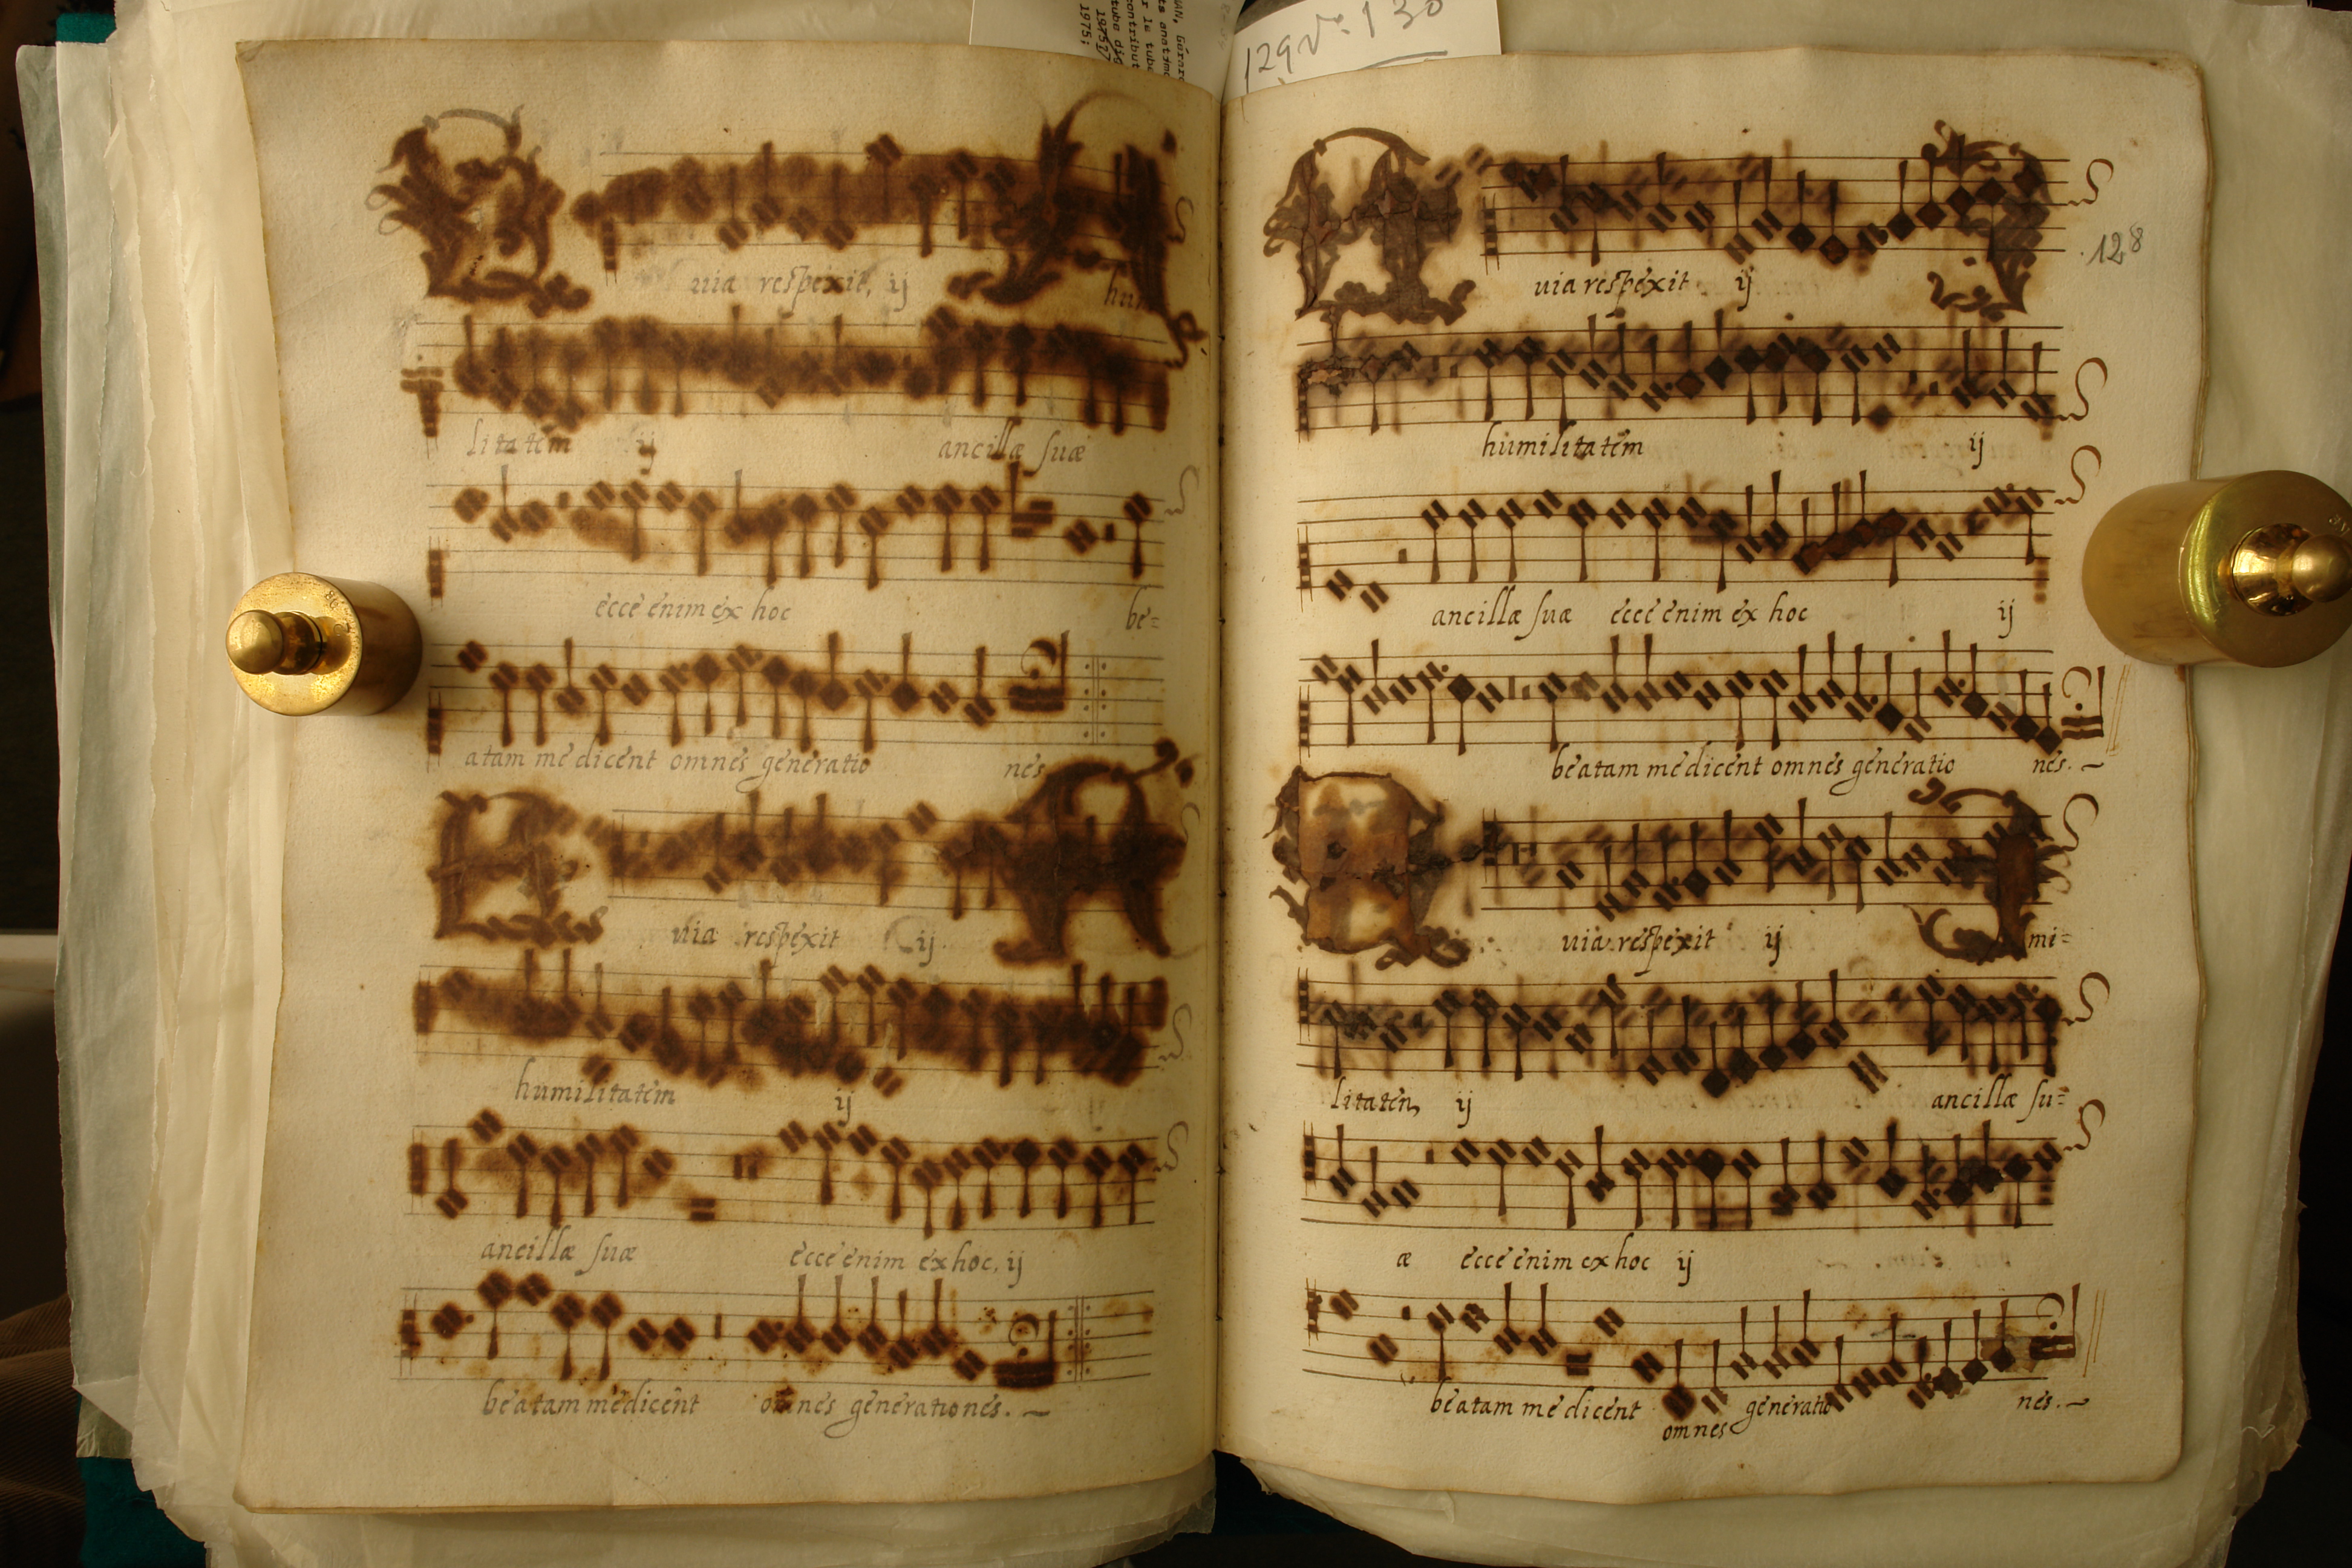 129 vo. 130
uia respexit, ij
hu
litatem ij ancillæ suæ
ecce enim ex hoc be=
atam me dicent omnes generatio nes
uia respexit ij
humilitatem ij
ancillæ suæ ecce enim ex hoc, ij
beatam me dicent omnes generationes.
128
uia respexit ij
humilitatem ij
ancillæ suæ ecce enim ex hoc ij
beatam me dicent omnes generatio nes.
uia respexit ij mi=
litatem ij ancillæ su=
æ ecce enim ex hoc ij
beatam me dicent omnes generatio nes.